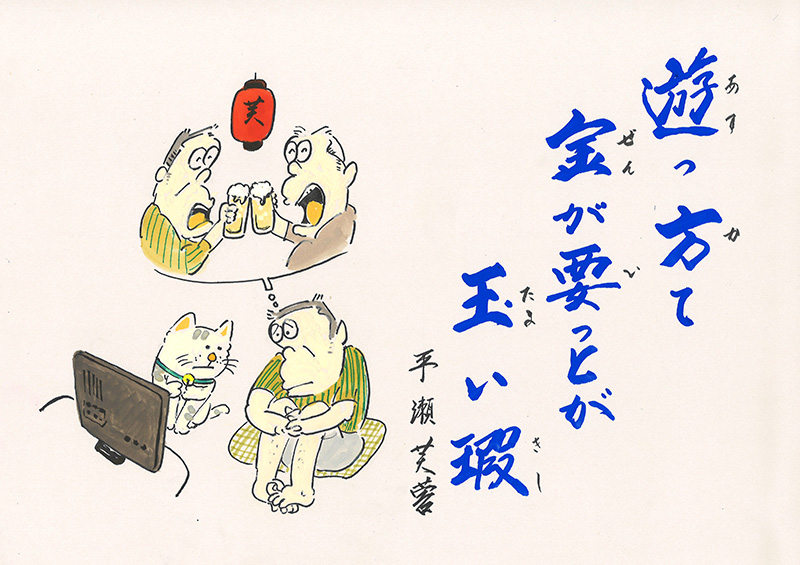 遊っ方て
あす か
金が要っとが
ぜん い
玉い瑕
たま きし
平瀬芙蓉
芙